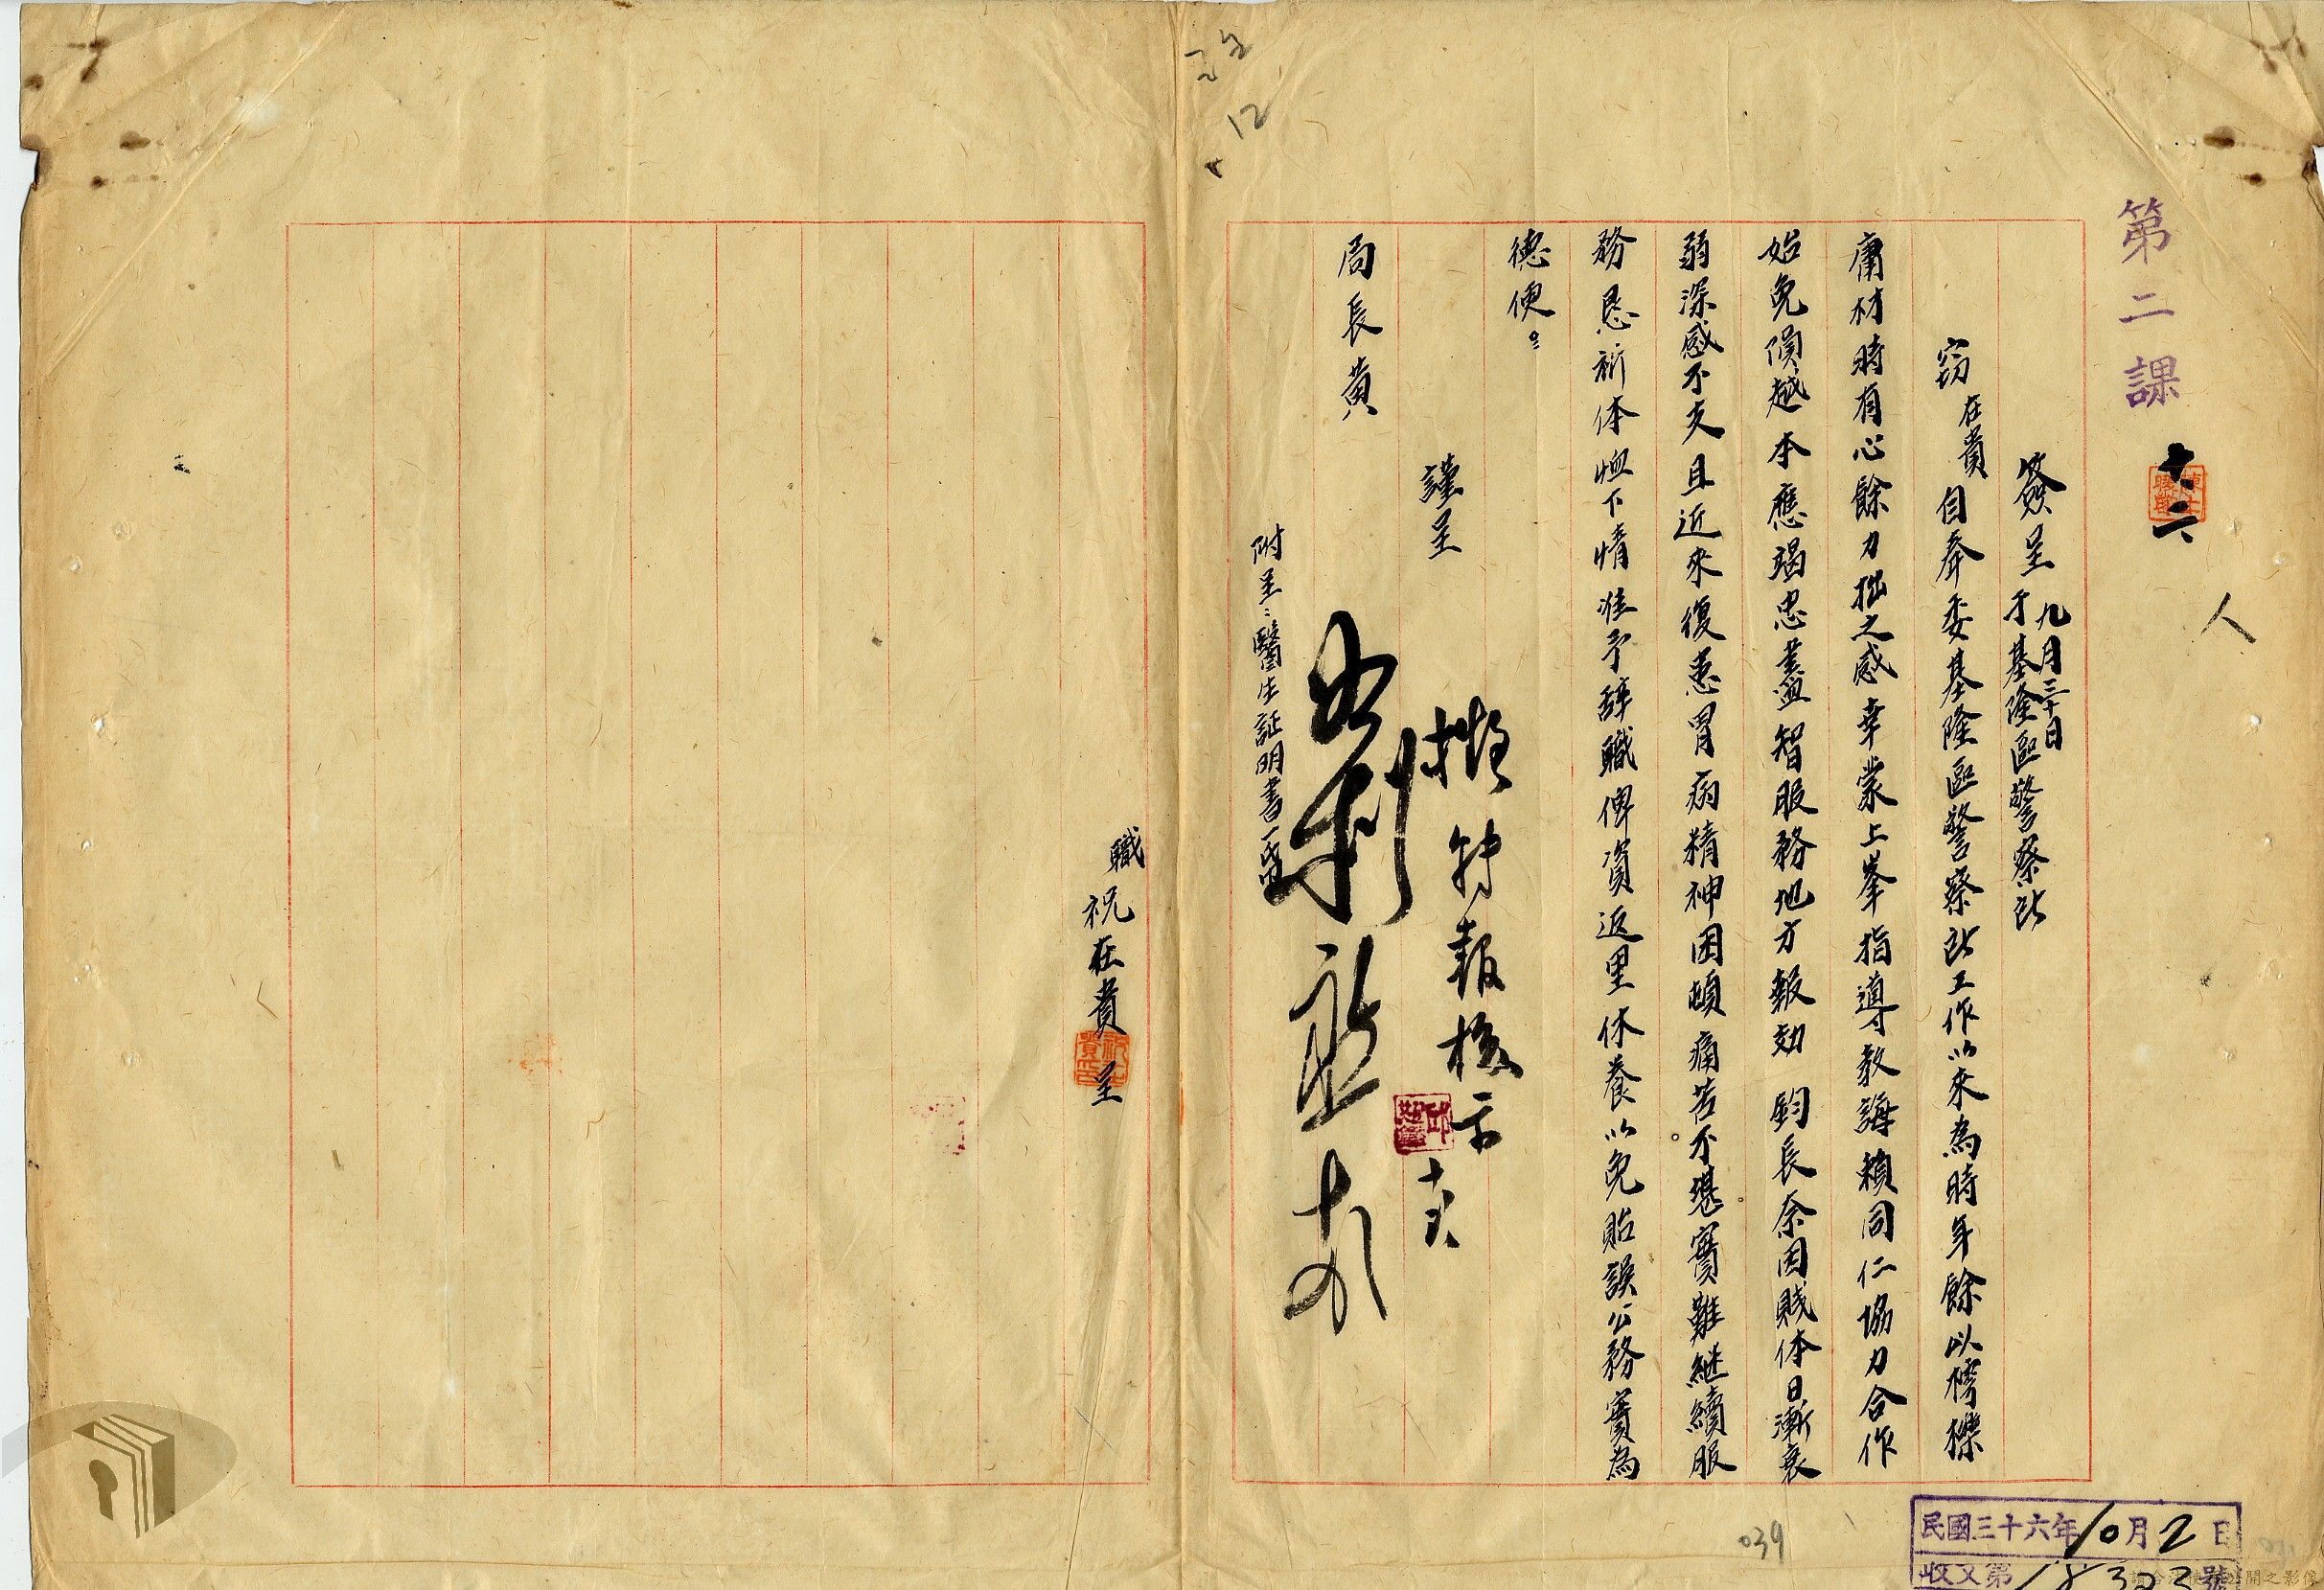 第二課
十、二
人
簽呈 九月三十日
于基隆區警察所
竊在貴自奉委基隆區警察所工作以來為時年餘以樗櫟
庸材時有心餘力拙之感幸蒙上峯指導教誨賴同仁協力合作
始免隕越本應竭忠盡智服務地方報効 鈞長奈因賤体日漸衰
弱深感不支且近來復患胃病精神困頓痛苦不堪實難継續服
務恳祈体恤下情准予辞職俾資返里休養以免貽誤公務實為
德便。
謹呈
擬轉報核示
局長黃
附呈:醫生証明書一
職祝在貴 呈
12
039
民國三十六年10月2日
收文第 號